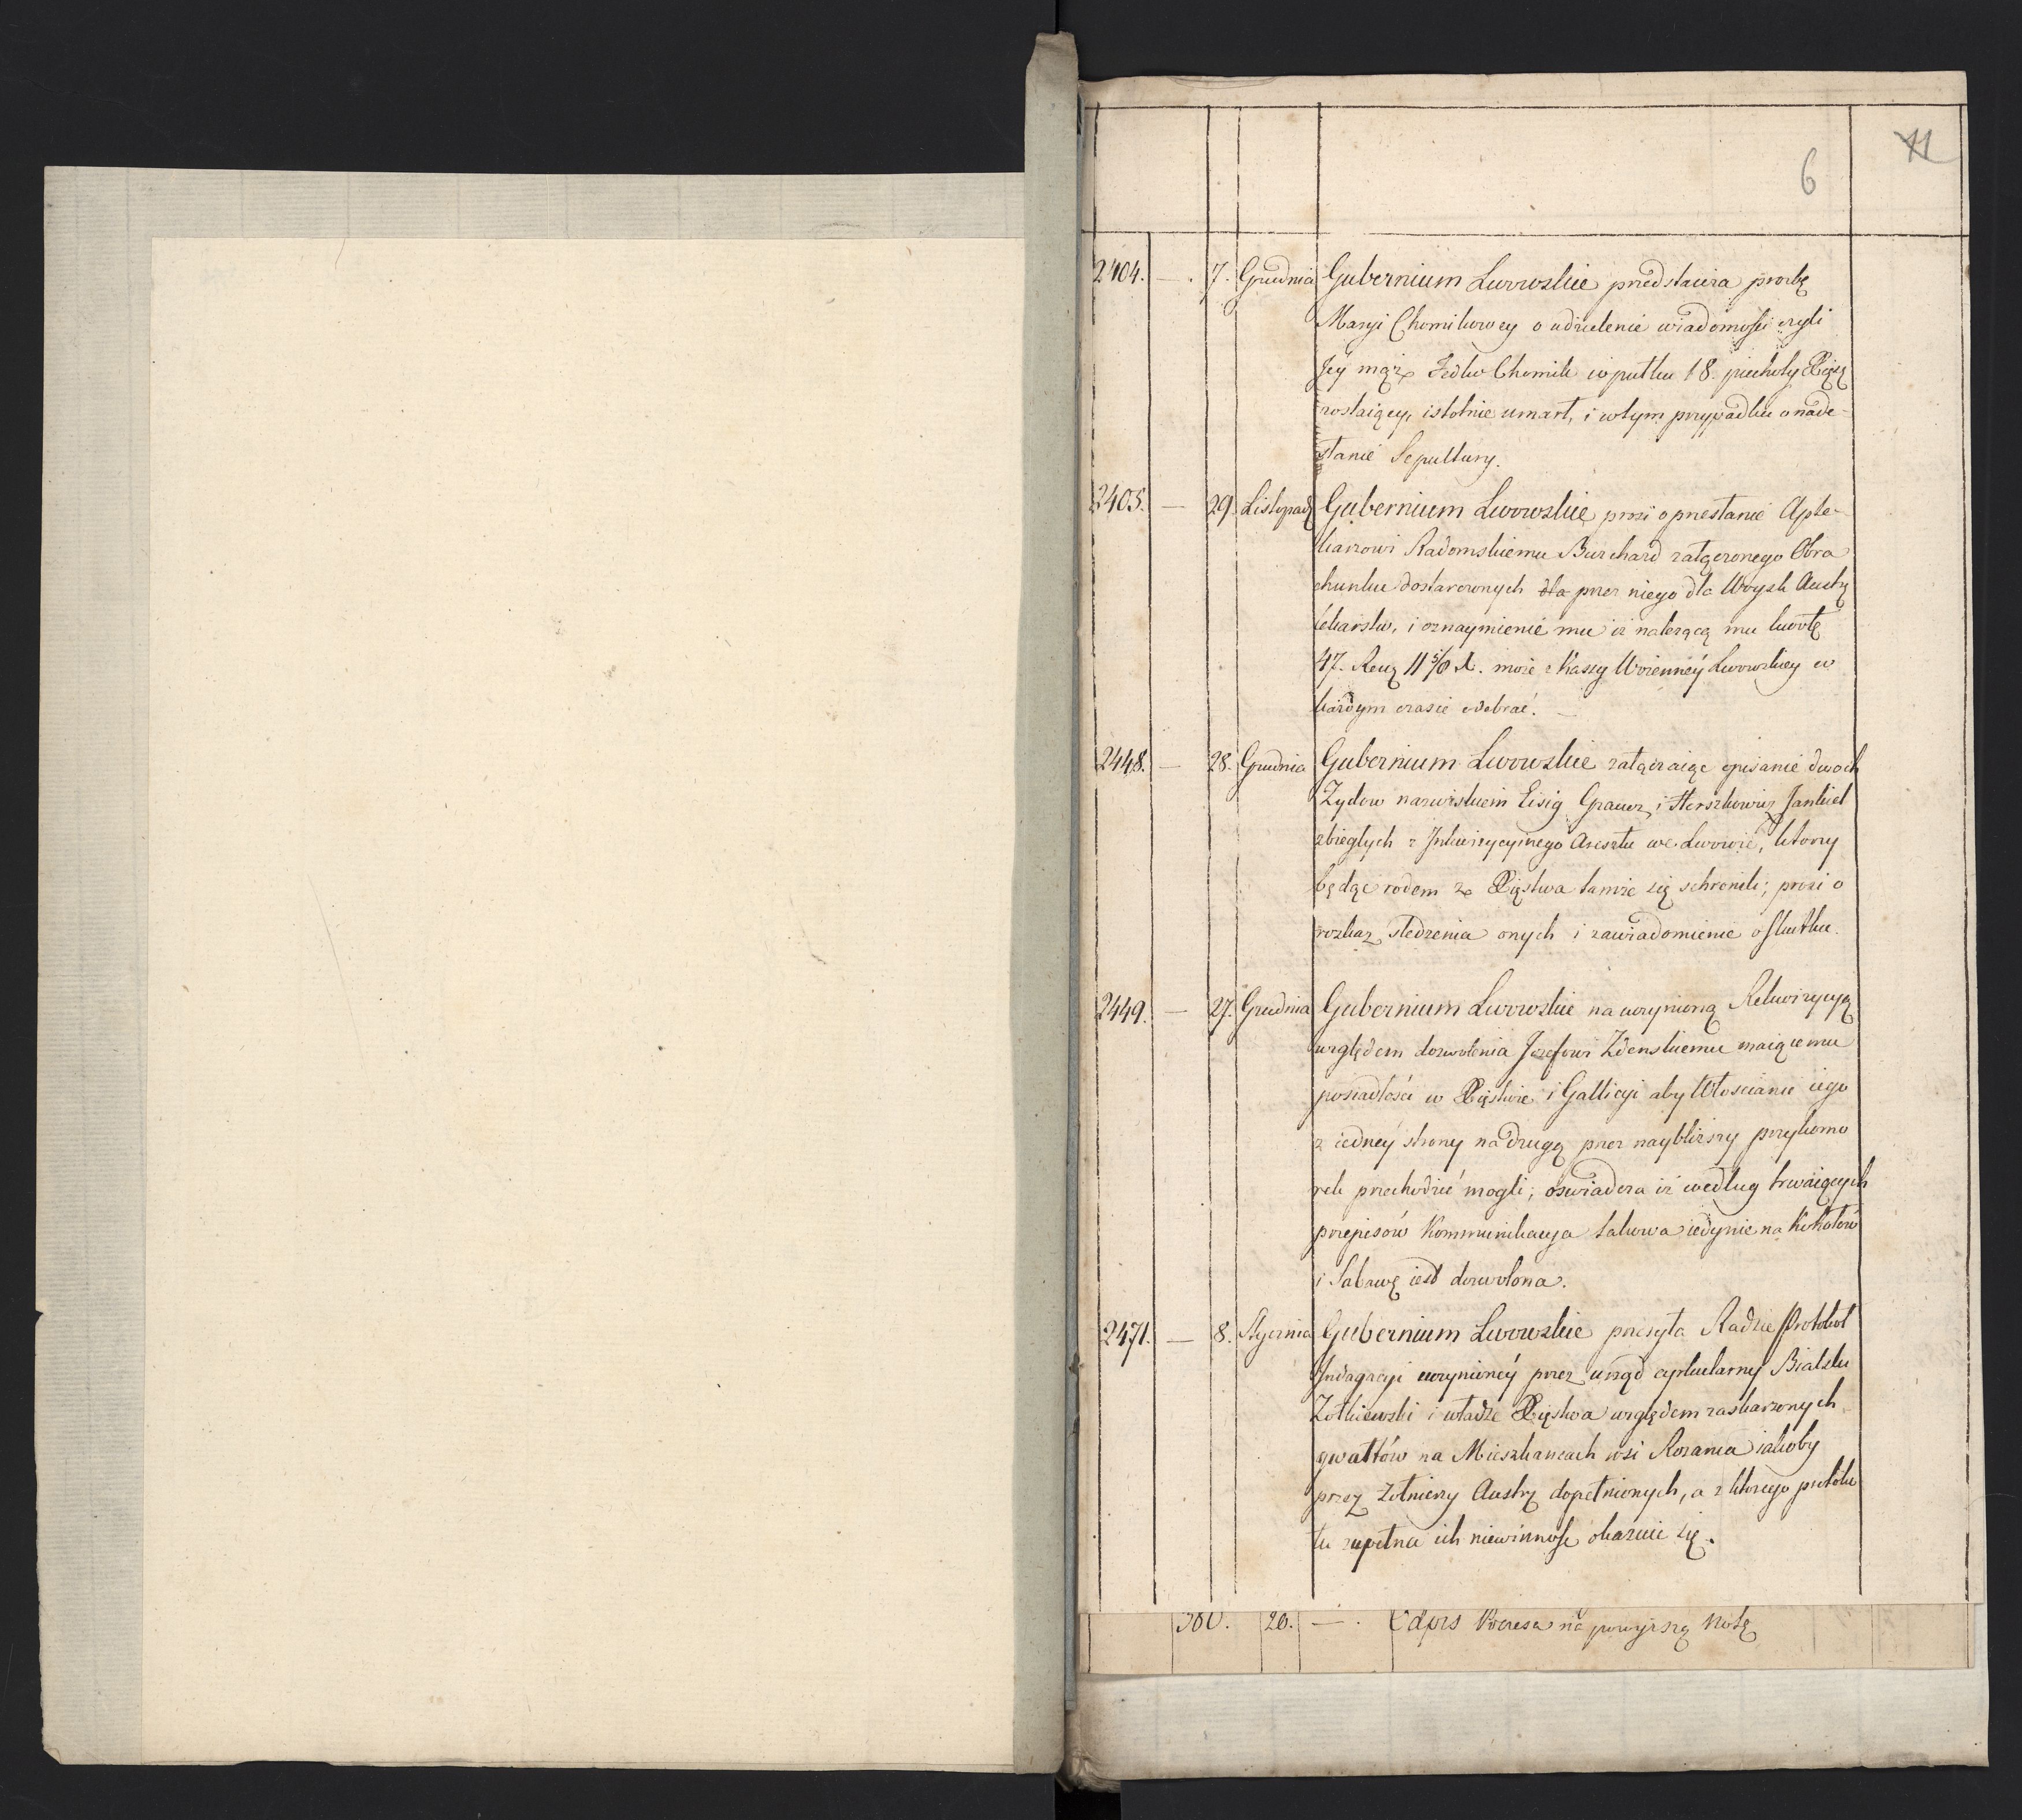 6 11
2404. — . 7. Grudnia Gubernium Lwowskie przedstawia prozbę
Maryi Chomikowey o udzielenie wiadomości czyli
Jey mąż Fedko Chomik w pułku 18. piechoty Xięz
zostaiący, istotnie umarł, i wtym przypadku o nade-
słanie Sepultury.
2405. — 29. Listopad Gubernium Lwowskie prosi o przesłanie Apte-
karzowi Radomskiemu Burchard załączonego Obra
chunku dostarczonych dla przez niego dla Woysk Austr
lekarstw, i oznaymienie mu iż należącą mu kwotę
47. Reń 11 5/8 x. może z Kassy Woienney Lwowskiey w
każdym czasie odebrać. —
2448. — 28. Grudnia Gubernium Lwowskie załączaiąc opisanie dwoch
Zydow nazwiskiem Eisig Grauer, i Herszkowicz Jankiel
zbiegłych z Inkwizycyinego Aresztu we Lwowie, ktorzy
będąc rodem z Xięstwa tamże się schronili; prosi o
rozkaz śledzenia onych i zawiadomienie o skutku.
2449. — 27. Grudnia Gubernium Lwowskie na uczynioną Rekwizycyą
względem dozwolenia Jozefowi Zdenskiemu maiącemu
posiadłości w Xięstwie i Gallicyi aby Włoscianie iego
z iedney strony na drugą przez naybliższy przykomo
rek przechodzić mogli; oswiadcza iż według trwaiących
przepisów Kommunikacya takowa iedynie na Kokotow
i Sabawę iest dozwolona.
2471. — 8. Stycznia Gubernium Lwowskie przesyła Radzie Protokoł
Indagacyi uczynioney przez urząd cyrkularny Bialsku
Zołkiewski i władze Xięstwa względem zaskarzonych
gwałtów na Mieszkancach wsi Rozanca iakoby
przez Zołnierzy Austr dopełnionych, a z ktorego protoku
łu zupełna ich niewinność okazuie się.
380. 20. — . Odpis Prezesa na powyższą Notę